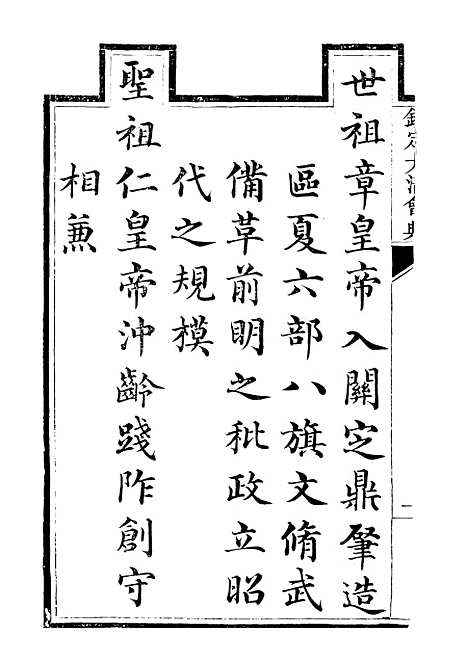 欽定大清會典
二
世祖章皇帝入關定鼎肇造
區夏六部八旗文脩武
備革前明之秕政立昭
代之規模
聖祖仁皇帝沖齡踐阼創守
相兼